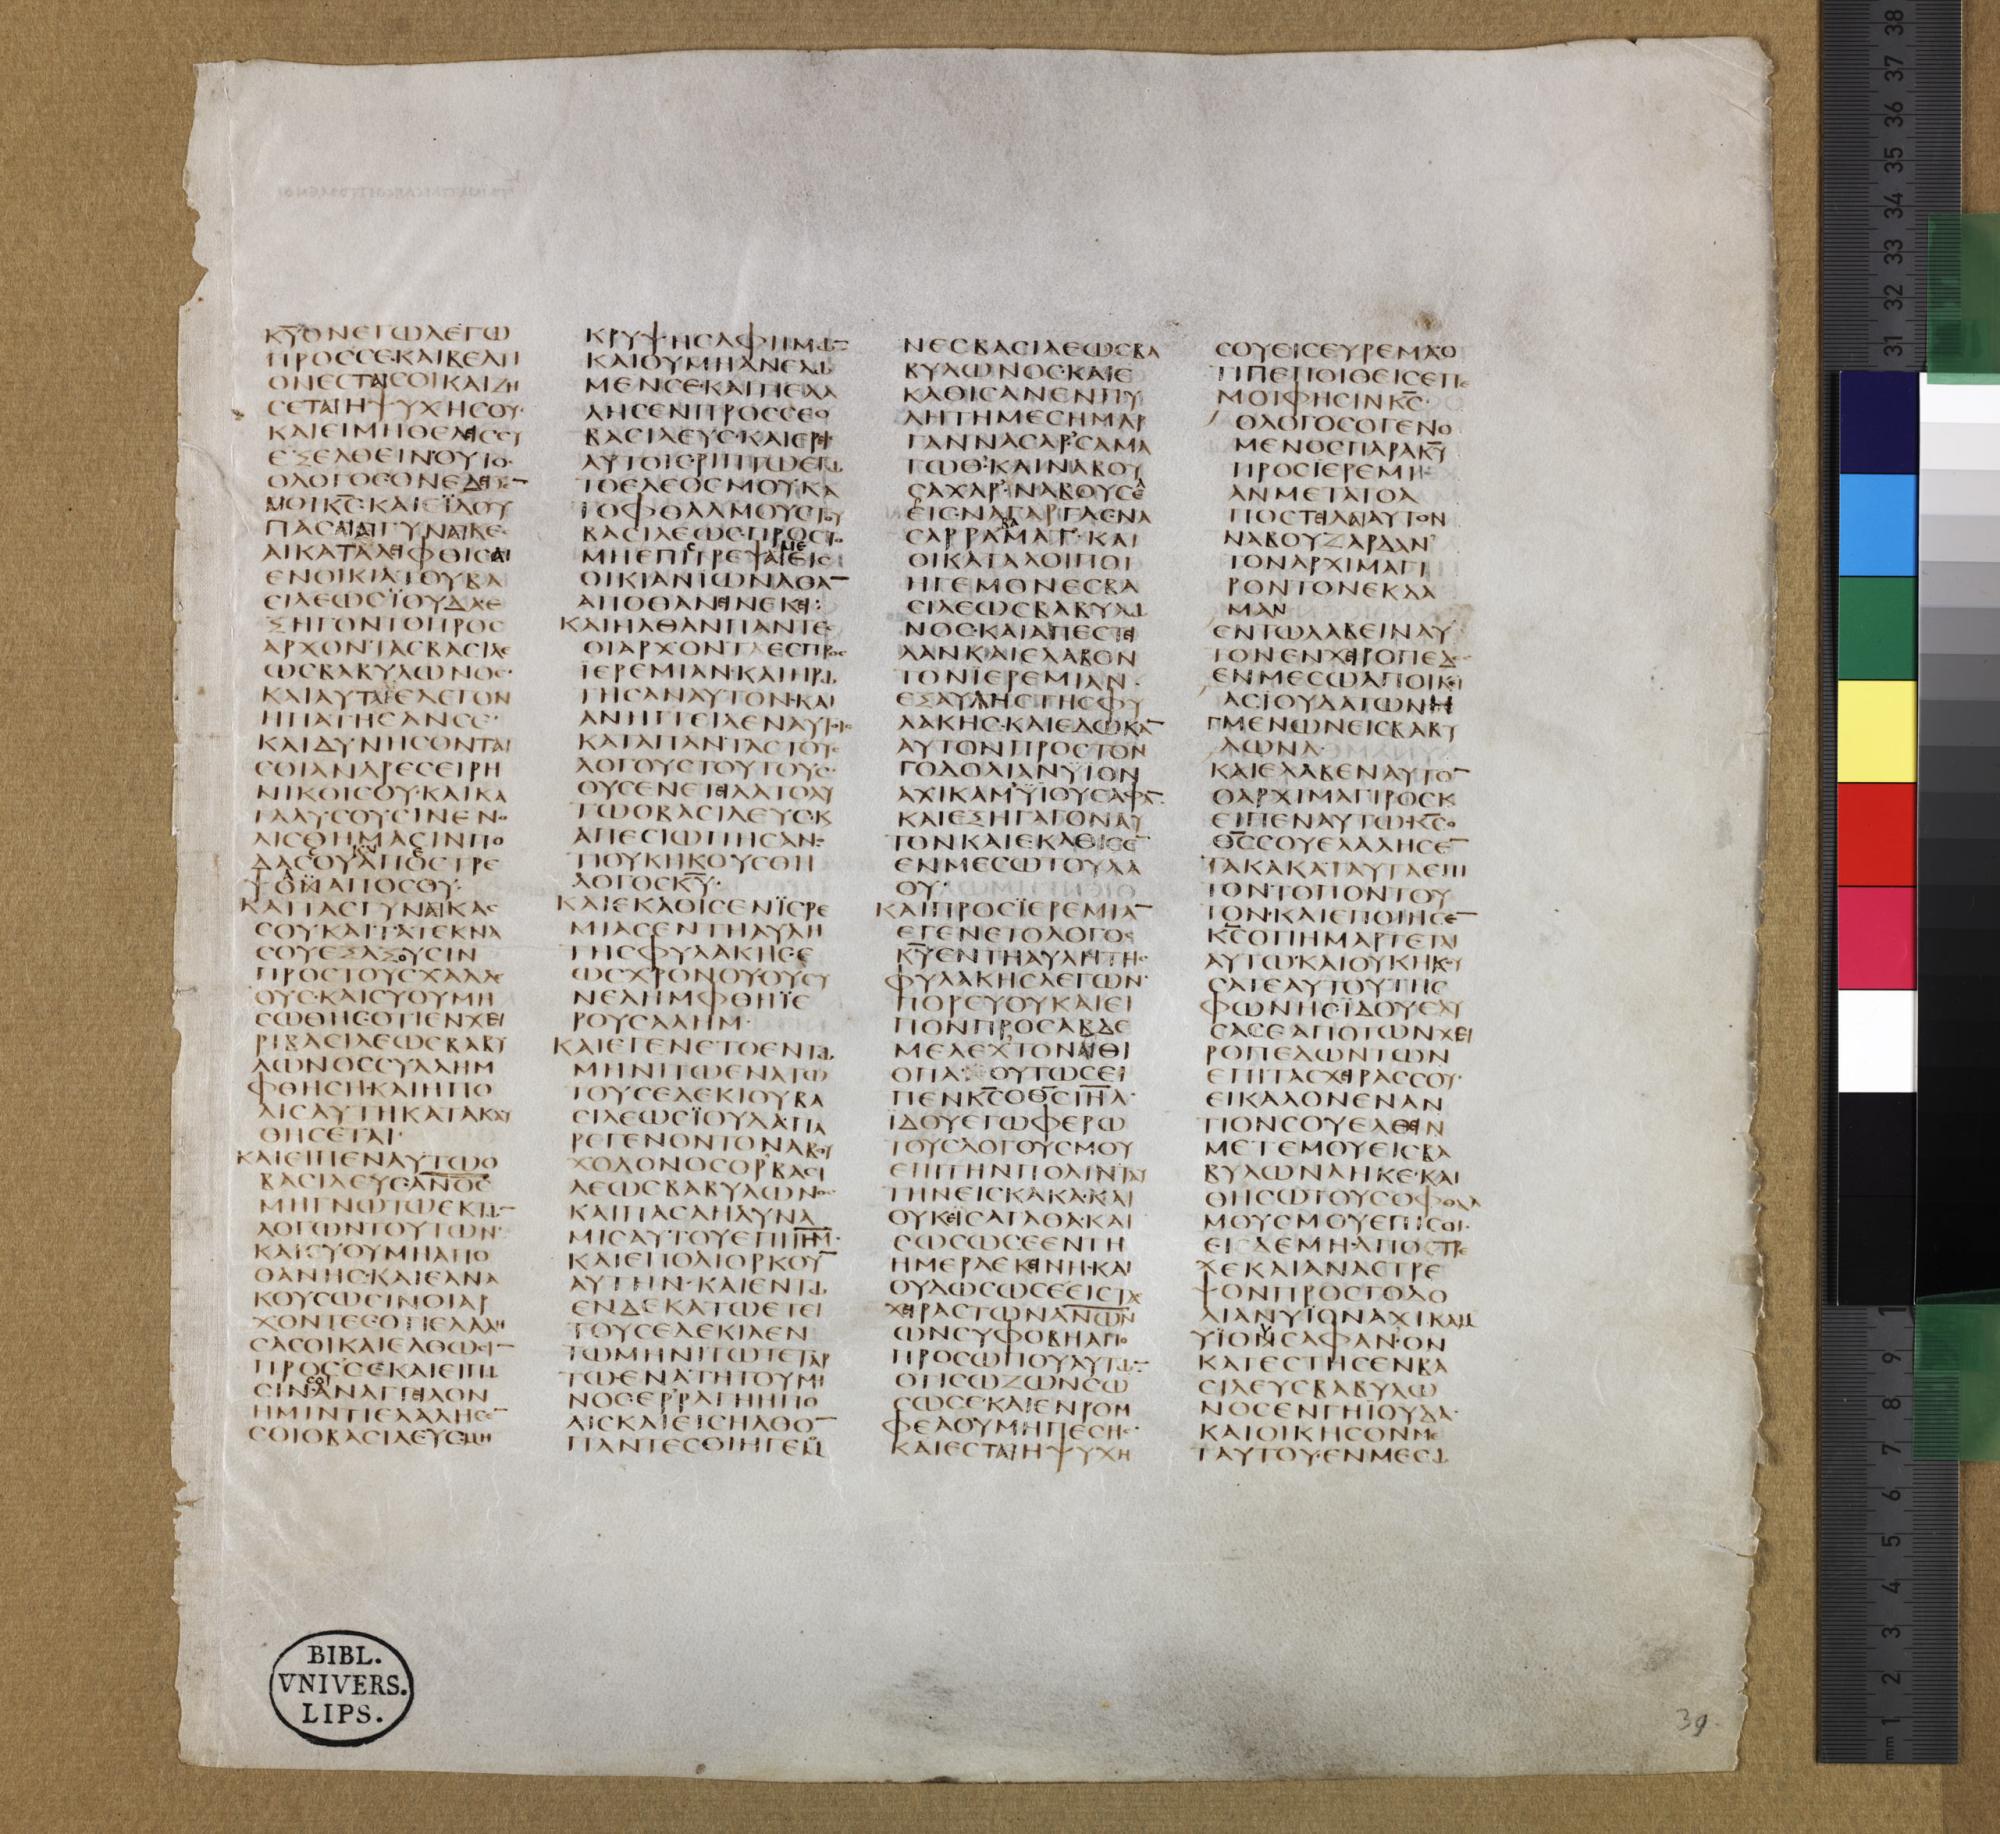 ΚΥΟΝΕΓΩΛΕΓΩ
ΠΡΟCCΕ·ΚΑΙΒΕΛΤΙ
ΟΝΕCΤΑΙCΟΙΚΑΙΖΗ
CΕΤΑΙΗΨΥΧΗCΟΥ·
ΚΑΙΕΙΜΗΘΕΛΕΙCCΥ
ΕΞΕΛΘΕΙΝΟΥΤΟ
ΟΛΟΓΟCΟΝΕΔΕΙΞΕ
ΜΟΙΚC·ΚΑΙΕΙΔΟΥ
ΠΑCΑΙΑΙΓΥΝΑΙΚΕ
ΑΙΚΑΤΑΛΕΙΦΘΙCΑΙ
ΕΝΟΙΚΙΑΤΟΥΒΑ
CΙΛΕΩCΪΟΥΔΑΕ
ΞΗΓΟΝΤΟΠΡΟC
ΑΡΧΟΝΤΑCΒΑCΙΛΕ
ΩCΒΑΒΥΛΩΝΟC·
ΚΑΙΑΥΤΑΙΕΛΕΓΟΝ
ΗΠΑΤΗCΑΝCΕ·
ΚΑΙΔΥΝΗCΟΝΤΑΙ
CΟΙΑΝΔΡΕCΕΙΡΗ
ΝΙΚΟΙCΟΥ·ΚΑΙΚΑ
ΤΑΛΥCΟΥCΙΝΕΝΟ
ΛΙCΘΗΜΑCΙΝΠΟ
ΔΑCCΟΥΑΠΕCΤΡΕ
ΨΑΝΑΠΟCΟΥ:
ΚΑΙΠΑCΓΥΝΑΙΚΑC
CΟΥΚΑΙΤΑΤΕΚΝΑ
CΟΥΕΞΑΞΟΥCΙΝ
ΠΡΟCΤΟΥCΧΑΛΔΑΙ
ΟΥC·ΚΑΙCΥΟΥΜΗ
CΩΘΗCΟΤΙΕΝΧΕΙ
ΡΙΒΑCΙΛΕΩCΒΑΒΥ
ΛΩΝΟCCΥΛΛΗΜ
ΦΘΗCΗ·ΚΑΙΗΠΟ
ΛΙCΑΥΤΗΚΑΤΑΚΑΥ
ΘΗCΕΤΑΙ·
ΚΑΙΕΙΠΕΝΑΥΤΩΟ
ΒΑCΙΛΕΥC·ΑΝΟC
ΜΗΓΝΩΤΩΕΚΤΩ
ΛΟΓΩΝΤΟΥΤΩΝ·
ΚΑΙCΥΟΥΜΗΑΠΟ
ΘΑΝΗC·ΚΑΙΕΑΝΑ
ΚΟΥCΩCΙΝΟΙΑΡ
ΧΟΝΤΕCΟΤΙΕΛΑΛΗ
CΑCΟΙΚΑΙΕΛΘΩCΙ
ΠΡΟCCΕ·ΚΑΙΕΙΠΩ
CΙΝCΟΙΑΝΑΓΓΕΙΛΟΝ
ΗΜΙΝΤΙΕΛΑΛΗCΕ
CΟΙΟΒΑCΙΛΕΥCΜΗ
ΚΡΥΨΗCΑΦΗΜΩ
ΚΑΙΟΥΜΗΑΝΕΛΩ
ΜΕΝCΕ·ΚΑΙΤΙΕΛΑ
ΛΗCΕΝΠΡΟCCΕΟ
ΒΑCΙΛΕΥC·ΚΑΙΕΡΕΙC
ΑΥΤΟΙCΡΙΠΤΩΕΓΩ
ΤΟΕΛΕΟCΜΟΥΚΑ
ΤΟΦΘΑΛΜΟΥCΤΟΥ
ΒΑCΙΛΕΩC·ΠΡΟCΤΟ
ΜΗΕΠΙCΤΡΕΨΑΙΜΕΕΙC
ΟΙΚΙΑΝΪΩΝΑΘΑ
ΑΠΟΘΑΝΕΙΝΕΚΕΙ:
ΚΑΙΗΛΘΑΝΠΑΝΤΕ
ΟΙΑΡΧΟΝΤΕCΠΡΟC
ΪΕΡΕΜΙΑΝ·ΚΑΙΗΡΩ
ΤΗCΑΝΑΥΤΟΝ·ΚΑΙ
ΑΝΗΓΓΕΙΛΕΝΑΥΤΟΙC
ΚΑΤΑΠΑΝΤΑCΤΟΥC
ΛΟΓΟΥCΤΟΥΤΟΥC·
ΟΥCΕΝΕΤΕΙΛΑΤΟΑΥ
ΤΩΟΒΑCΙΛΕΥC·Κ
ΑΠΕCΙΩΠΗCΑΝ·
ΤΙΟΥΚΗΚΟΥCΘΗ
ΛΟΓΟCΚΥ·
ΚΑΙΕΚΑΘΙCΕΝΪΕΡΕ
ΜΙΑCΕΝΤΗΑΥΛΗ
ΤΗCΦΥΛΑΚΗCΕ
ΩCΧΡΟΝΟΥΟΥCΥ
ΝΕΛΗΜΦΘΗΪΕ
ΡΟΥCΑΛΗΜ·
ΚΑΙΕΓΕΝΕΤΟΕΝΤΩ
ΜΗΝΙΤΩΕΝΑΤΩ
ΤΟΥCΕΔΕΚΙΟΥΒΑ
CΙΛΕΩCΪΟΥΔΑΠΑ
ΡΕΓΕΝΟΝΤΟΝΑΒΟΥ
ΧΟΔΟΝΟCΟΡΒΑCΙ
ΛΕΩCΒΑΒΥΛΩΝΟC
ΚΑΙΠΑCΑΗΔΥΝΑ
ΜΙCΑΥΤΟΥΕΠΙΪΗΜ·
ΚΑΙΕΠΟΛΙΟΡΚΟΥ
ΑΥΤΗΝ·ΚΑΙΕΝΤΩ
ΕΝΔΕΚΑΤΩΕΤΕΙ
ΤΟΥCΕΔΕΚΙΑΕΝ
ΤΩΜΗΝΙΤΩΤΕΤΑΡ
ΤΩΕΝΑΤΗΤΟΥΜΗ
ΝΟC·ΕΡΡΑΓΗΗΠΟ
ΛΙCΚΑΙΕΙCΗΛΘΟ
ΠΑΝΤΕCΟΙΗΓΕΜΟ
ΝΕCΒΑCΙΛΕΩCΒΑ
ΒΥΛΩΝΟC·ΚΑΙΕ
ΚΑΘΙCΑΝΕΝΠΥ
ΛΗΤΗΜΕCΗΜΑΡ
ΓΑΝΝΑCΑΡ·CΑΜΑ
ΓΩΘ·ΚΑΙΝΑΒΟΥ
CΑΧΑΡ·ΝΑΒΟΥCΕ
ΕΙC·ΝΑΓΑΡΓΑCΕΝΑ
CΑΡΡΑΒΑΜΑΓ·ΚΑΙ
ΟΙΚΑΤΑΛΟΙΠΟΙ
ΗΓΕΜΟΝΕCΒΑ
CΙΛΕΩCΒΑΒΥΛΩ
ΝΟC·ΚΑΙΑΠΕCΤΕΙ
ΛΑΝΚΑΙΕΛΑΒΟΝ
ΤΟΝΪΕΡΕΜΙΑΝ·
ΕΞΑΥΛΗCΤΗCΦΥ
ΛΑΚΗC·ΚΑΙΕΔΩΚΑ
ΑΥΤΟΝΠΡΟCΤΟΝ
ΓΟΔΟΛΙΑΝΫΙΟΝ
ΑΧΙΚΑΜΫΙΟΥCΑΦΑ
ΚΑΙΕΞΗΓΑΓΟΝΑΥ
ΤΟΝΚΑΙΕΚΑΘΙCΕ
ΕΝΜΕCΩΤΟΥΛΑ
ΟΥ·
ΚΑΙΠΡΟCΪΕΡΕΜΙΑ
ΕΓΕΝΕΤΟΛΟΓΟC
ΚΥΕΝΤΗΑΥΛΗΤΗC
ΦΥΛΑΚΗCΛΕΓΩΝ·
ΠΟΡΕΥΟΥΚΑΙΕΙ
ΠΟΝΠΡΟCΑΒΔΕ
ΜΕΛΕΧΤΟΝΑΙΘΙ
ΟΠΑ ΟΥΤΩCΕΙ
ΠΕΝΚCΟΘCΙΗΛ·
ΪΔΟΥΕΓΩΦΕΡΩ
ΤΟΥCΛΟΓΟΥCΜΟΥ
ΕΠΙΤΗΝΠΟΛΙΝΤΑΥ
ΤΗΝΕΙCΚΑΚΑ·ΚΑΙ
ΟΥΚΕΙCΑΓΑΘΑ·ΚΑΙ
CΩCΩCΕΕΝΤΗ
ΗΜΕΡΑΕΚΕΙΝΗ·ΚΑΙ
ΟΥΔΩCΩCΕΕΙCΤΑC
ΧΕΙΡΑCΤΩΝΑΝΩΝ
ΩΝCΥΦΟΒΗΑΠΟ
ΠΡΟCΩΠΟΥΑΥΤΩ
ΟΤΙCΩΖΩΝCΩ
CΩCΕ·ΚΑΙΕΝΡΟΜ
ΦΕΑΟΥΜΗΠΕCΗC·
ΚΑΙΕCΤΑΙΗΨΥΧΗ
CΟΥΕΙCΕΥΡΕΜΑΟ
ΤΙΠΕΠΟΙΘΕΙCΕΠΕ
ΜΟΙΦΗCΙΝΚC·
ΟΛΟΓΟCΟΓΕΝΟ
ΜΕΝΟCΠΑΡΑΚΥ
ΠΡΟCΙΕΡΕΜΙ
ΑΝΜΕΤΑΤΟΑ
ΠΟCΤΕΙΛΑΙΑΥΤΟΝ
ΝΑΒΟΥΖΑΡΔΑΝ
ΤΟΝΑΡΧΙΜΑΓΙ
ΡΟΝΤΟΝΕΚΔΑ
ΜΑΝ
ΕΝΤΩΛΑΒΕΙΝΑΥ
ΤΟΝΕΝΧΕΙΡΟΠΕΔΑΙC
ΕΝΜΕCΩΑΠΟΙΚΙ
ΑCΪΟΥΔΑΤΩΝΗ
ΓΜΕΝΩΝΕΙCΒΑΒΥ
ΛΩΝΑ·
ΚΑΙΕΛΑΒΕΝΑΥΤΟ
ΟΑΡΧΙΜΑΓΙΡΟCΚ
ΕΙΠΕΝΑΥΤΩ·ΚCΟ
ΘCCΟΥΕΛΑΛΗCΕ
ΤΑΚΑΚΑΤΑΥΤΑΕΠΙ
ΤΟΝΤΟΠΟΝΤΟΥ
ΤΟΝ·ΚΑΙΕΠΟΙΗCΕ
ΚCΟΤΙΗΜΑΡΤΕΤΑΙ
ΑΥΤΩ·ΚΑΙΟΥΚΗΚΟΥ
CΑΤΕΑΥΤΟΥΤΗC
ΦΩΝΗC·ΪΔΟΥΕΛΥ
CΑCΕΑΠΟΤΩΝΧΕΙ
ΡΟΠΕΔΩΝΤΩΝ
ΕΠΙΤΑCΧΕΙΡΑCCΟΥ·
ΕΙΚΑΛΟΝΕΝΑΝ
ΤΙΟΝCΟΥΕΛΘΕΙΝ
ΜΕΤΕΜΟΥΕΙCΒΑ
ΒΥΛΩΝΑΗΚΕ·ΚΑΙ
ΘΗCΩΤΟΥCΟΦΘΑΛ
ΜΟΥCΜΟΥΕΠΙCΟΙ·
ΕΙCΔΕΜΗ·ΑΠΟCΤΡΕ
ΧΕΚΑΙΑΝΑCΤΡΕ
ΨΟΝΠΡΟCΓΟΔΟ
ΛΙΑΝΥΪΟΝΑΧΙΚΑΜ
ΥΪΟΥCΑΦΑΝ·ΟΝ
ΚΑΤΕCΤΗCΕΝΒΑ
CΙΛΕΥCΒΑΒΥΛΩ
ΝΟCΕΝΓΗΪΟΥΔΑ·
ΚΑΙΟΙΚΗCΟΝΜΕ
ΤΑΥΤΟΥ·ΕΝΜΕCΩ
BIBL.
VNIVERS.
LIPS.
39.